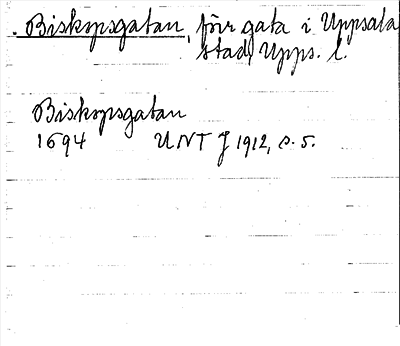 . Biskopsgatan, förr gata i Uppsala
stad, Upps. l.
Biskopsgatan
1694 UNT J 1912, s. 5.